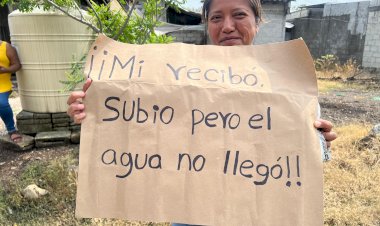 ¡¡Mi recibó.
Subio pero el
agua no llegó!!